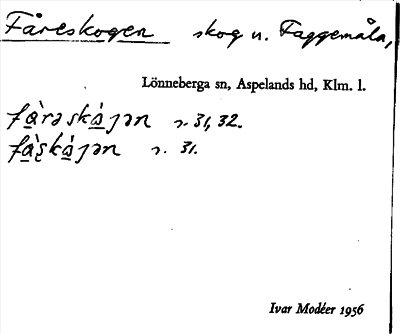 Fåreskogen skog u. Faggemåla,
Lönneberga sn, Aspelands hd, Klm. l.
fà̱rəská̱ȷən s. 31, 32.
fà̱ʂká̱ȷən s. 31.
Ivar Modéer 1956